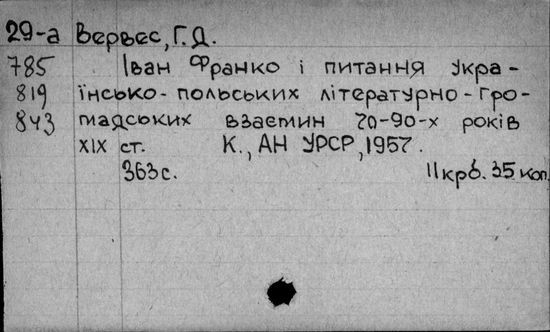 29-а Вервес, Г.Д.
785 Іван Франко і питання укра-
819 їнсько-польських літературно-гро-
843 мадських взаємин 70-90-х років
XIX ст. К., АН УРСР, 1957.
363с. 11крб. 35 коп.